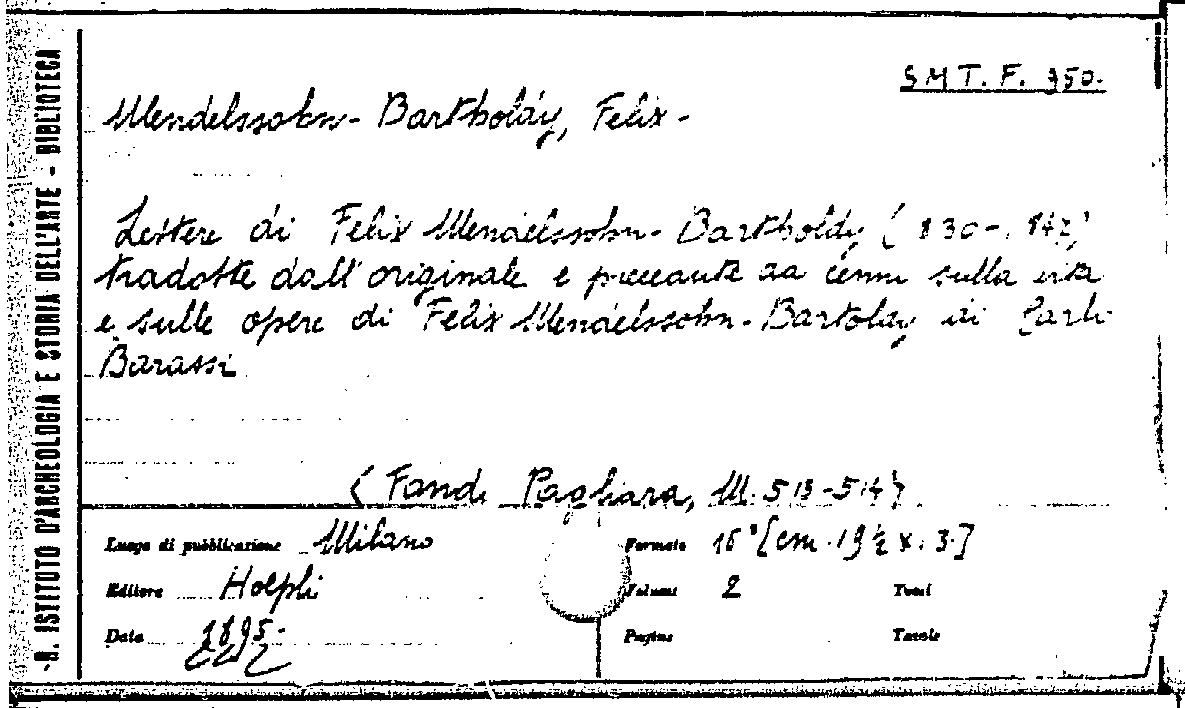 R. ISTITUTO D'ARCHEOLOGIA E STORIA DELL'ARTE - BIBLIOTECA
S M T. F. 950.
Mendelssohn - Bartholdy, Felix -
Lettere di Felix Mendelssohn - Bartholdy (1830-1847)
tradotte dall'originale e precedute da cenni sulla vita
e sulle opere di Felix Mendelssohn - Bartoldy di Carlo
Barassi
(Fond. Pagliara, M. 513-514)
Luogo di pubblicazione Milano
Formato 16° [cm. 19½ x 13]
Editore Hoepli
Volumi 2
Tomi
Data 1895.
Pagine
Tavole